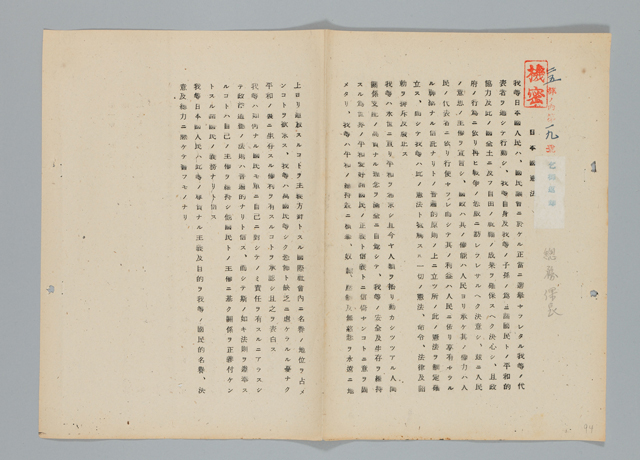 機密
日本國憲法
我等日本國人民ハ、國民議會ニ於ケル正當ニ選擧セラレタル我等ノ代
表者ヲ通シテ行動シ、我等自身及我等ノ子孫ノ爲ニ諸國民トノ平和的
協力及此ノ國全土ニ及フ自由ノ祝福ノ成果ヲ確保スヘク決心シ、且政
府ノ行爲ニ依リ再ヒ戰爭ノ恐威ニ訪レラレサルヘク決意シ、茲ニ人民
ノ意思ノ主權ヲ宣言シ、國政ハ其ノ權能ハ人民ヨリ承ケ其ノ權力ハ人
民ノ代表者ニ依リ行使セラレ而シテ其ノ利益ハ人民ニ依リ享有セラル
ル神聖ナル信託ナリトノ普遍的原則ノ上ニ立ツ所ノ此ノ憲法ヲ制定確
立ス、而シテ我等ハ此ノ憲法ト抵觸スル一切ノ憲法、命令、法律及詔
勅ヲ排斥及廢止ス
我等ハ永世ニ亘リ平和ヲ希求シ且今ヤ人類ヲ揺リ動カシツツアル人間
關係支配ノ高貴ナル理念ヲ滿全ニ自覺シテ、我等ノ安全及生存ヲ維持
スル爲世界ノ平和愛好諸國民ノ正義ト信義トニ倚依センコトニ意ヲ固
メタリ、我等ハ平和ノ維持竝ニ横暴、奴隷、壓制及無慈悲ヲ永遠ニ地
上ヨリ追放スルコトヲ主義方針トスル國際社會内ニ名譽ノ地位ヲ占メ
ンコトヲ欲求ス、我等ハ萬國民等シク恐怖ト缺乏ニ虐ケラルル憂ナク
平和ノ裏ニ生存スル權利ヲ有スルコトヲ承認シ且之ヲ表白ス
我等ハ如何ナル國民モ單ニ自己ニ對シテノミ責任ヲ有スルニアラスシ
テ政治道徳ノ法則ハ普遍的ナリト信ス、而シテ斯ノ如キ法則ヲ遵奉ス
ルコトハ自己ノ主權ヲ維持シ他國民トノ主權ニ基ク關係ヲ正義付ケン
トスル諸國民ノ義務ナリト信ス
我等日本國人民ハ此等ノ尊貴ナル主義及目的ヲ我等ノ國民的名譽、決
意及總力ニ懸ケテ誓フモノナリ